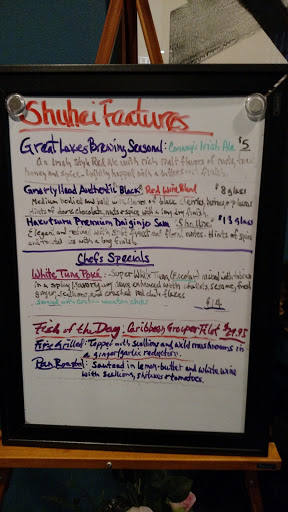 Shuhei Features
Great Lakes Brewing Seasonal: Conway's Irish Ale $5
An Irish Style Red Ale with rich malt flavors of
honey and spice. with a finish.
Gnarly Head Authentic Black: Red Wine Blend $8 glass
Medium bodied and bold with flavor of black cherries,
Hints of chocolate, and spice with a long dry finish.
Hakutsuru Premium Daiginjo Sam $13 glass
Elegant and refined with fruit and floral notes. Hints of spice
and with a long finish
Chefs Specials
White Tuna Poké: -Super White Tuna (Escolar) mixed with
in a spicy savory soy sauce enhanced with shallots, sesame, fresh
ginger, scallions, and crushed red chili flakes
Served with wonton chips $14
Fish of the Day: Caribbean Grouper Filet $29.95
Fire Grilled: Topped with scallions and wild mushrooms in
a ginger/garlic reduction.
Pan Roasted: Sauteed in lemon-butter and white wine
with scallions, shrimp & tomatoes.